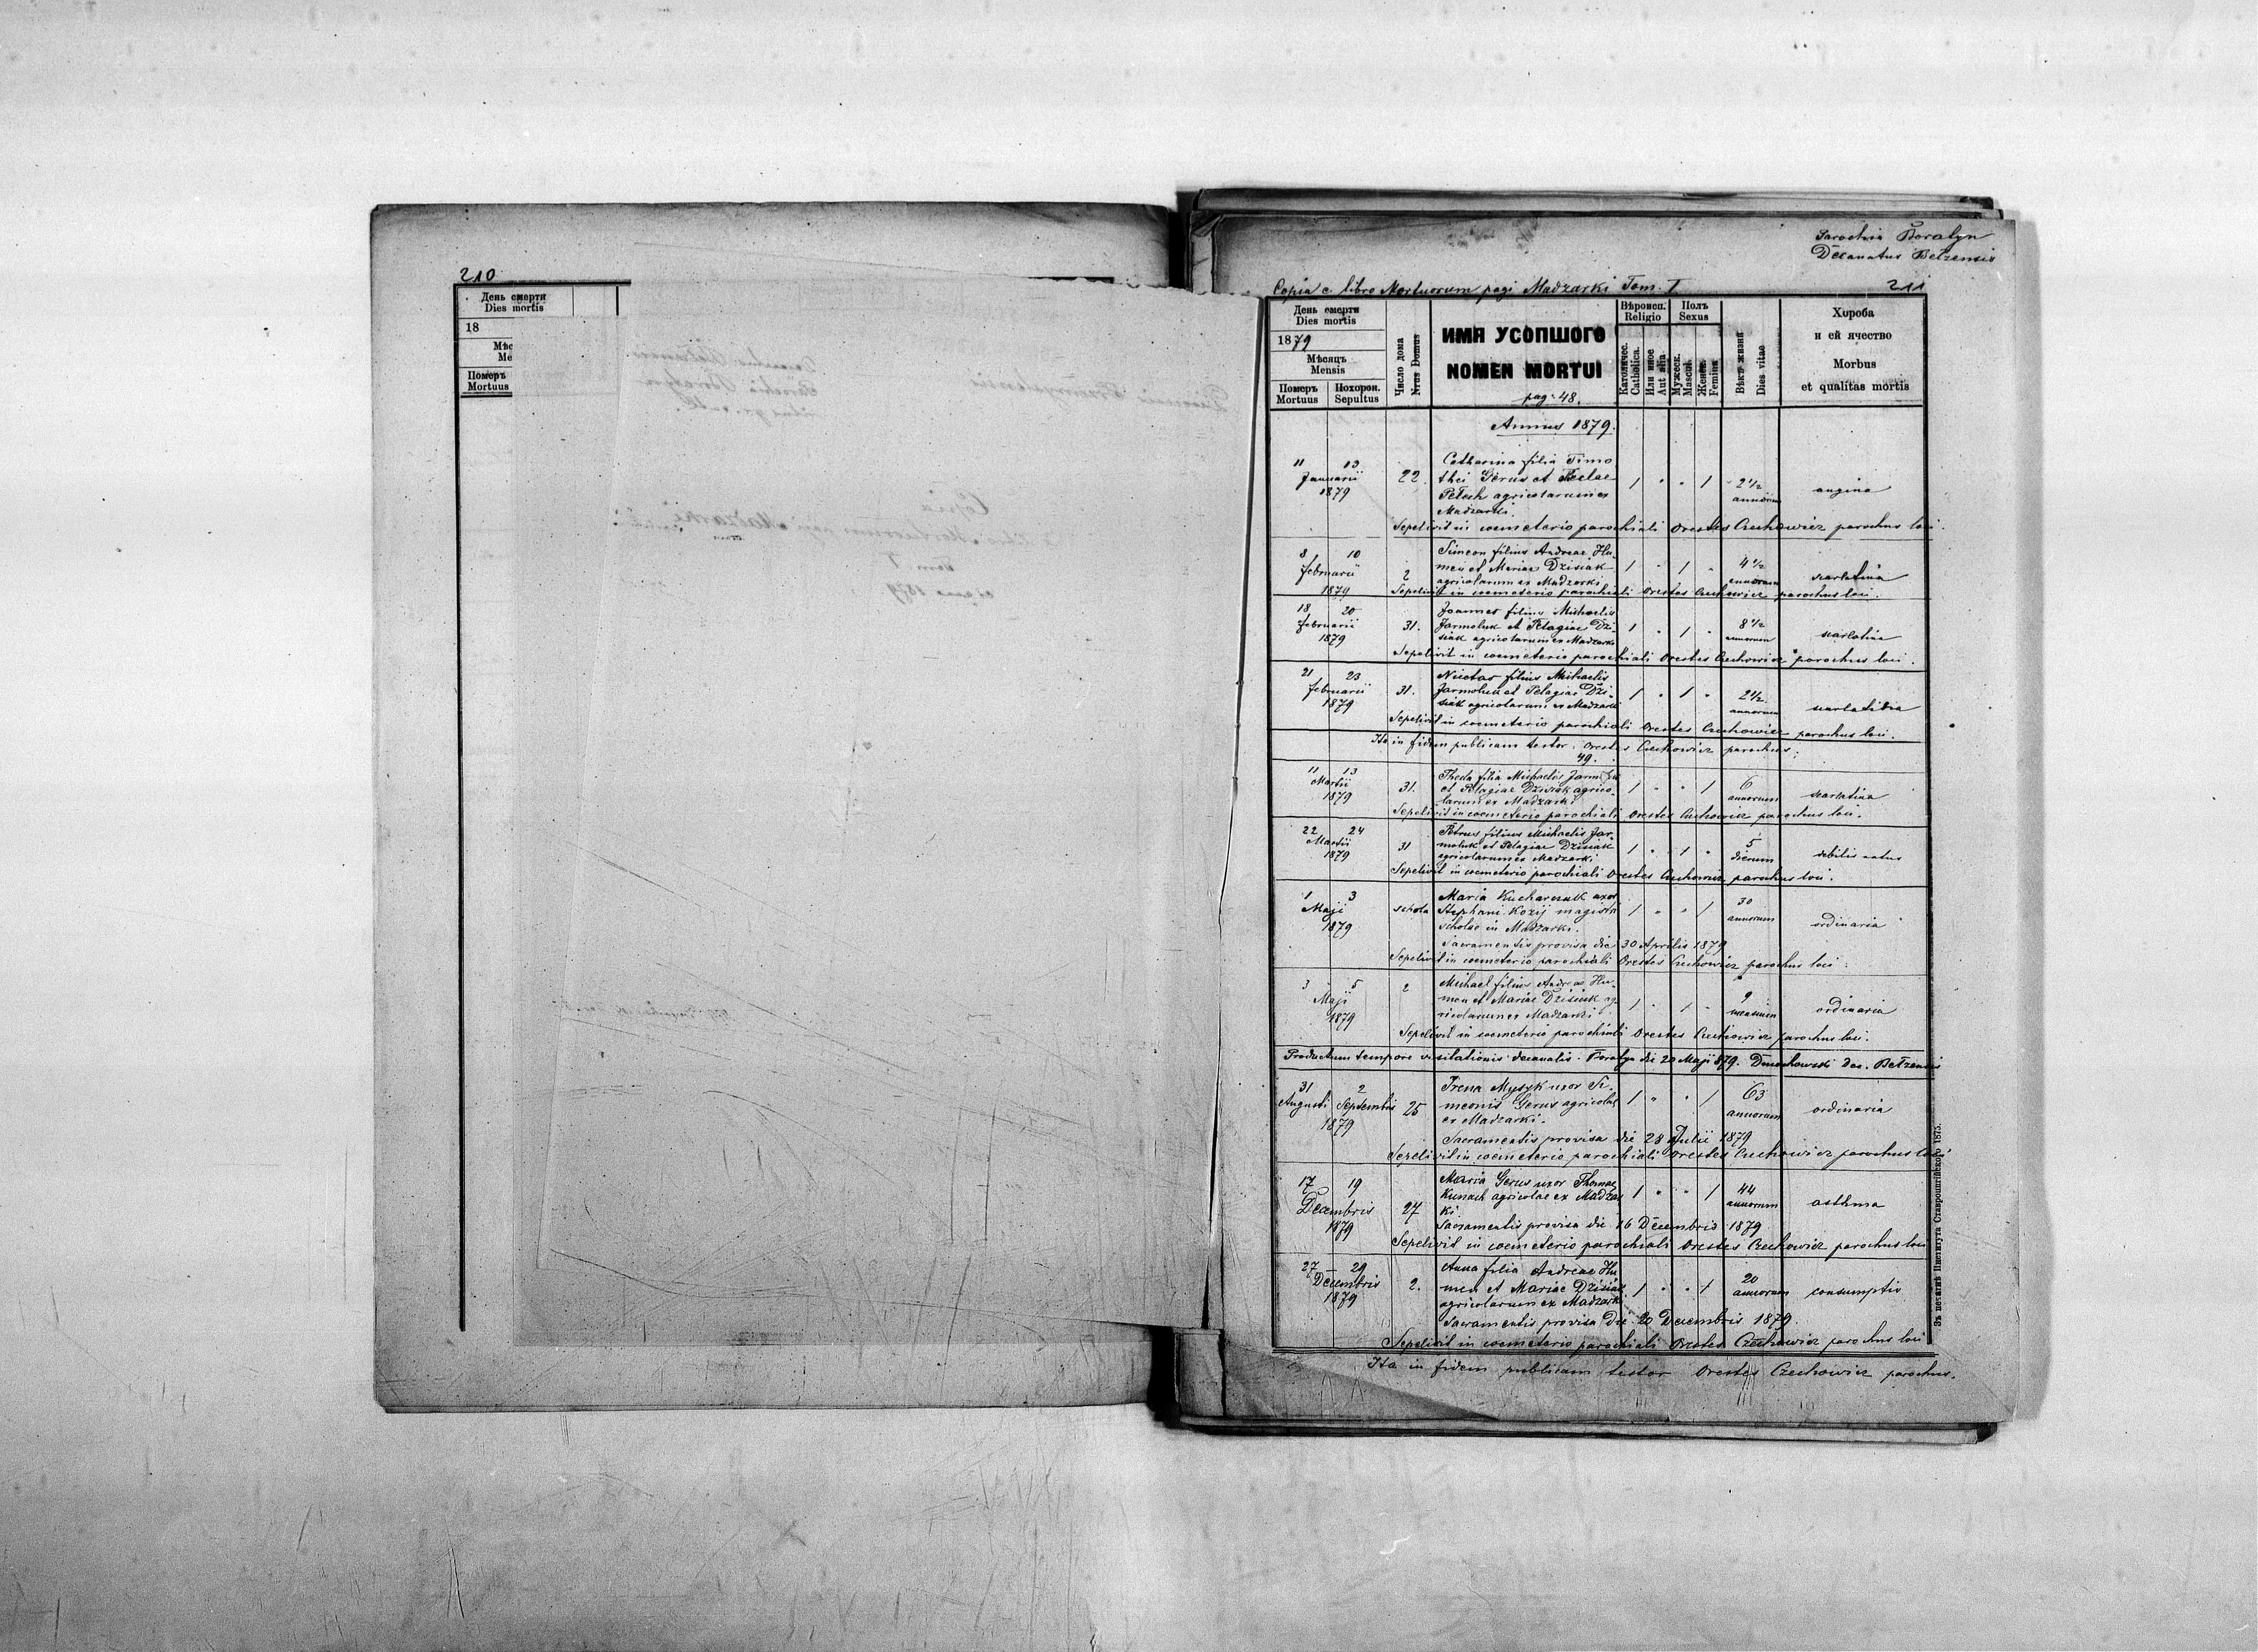 210
День смерти
Dies mortis
18
Мѣс
Me
Померъ
Mortuus
Parochia Boratyn
Decanatus Bełzensis
Copia e libro Mortuorum pagi Madzarki Tom. I
211
День смерти
Dies mortis
1879
Мѣсяцъ
Mensis
Померъ
Mortuus
Похорон.
Sepultus
Число дома
Nrus Domus
ИМЯ УСОПШОГО
NOMEN MORTUI
pag. 48.
Вѣроисп.
Religio
Католичес.
Catholica.
Или иное
Aut alia
Полъ
Sexus
Мужеск.
Mascul.
Женск.
Femina
Вѣкъ жизни
Dies vitae
Хороба
и ей ячество
Morbus
et qualitas mortis
Annus 1879.
11 13
Januarii
1879
22.
Catharina filia Timo
thei Gerus et Teclae
Petech agricolarum ex
Madzarki.
1 " " 1
2 1/2
annorum
angina
Sepelivit in coemeterio parochiali Orestes Czechowicz parochus loci.
8 10
Februarii
1879
2
Simeon filius Andreae Hu-
men et Mariae Dzisiak
agricolarum ex Madzarki
1 " 1 "
4 1/2
annorum
scarlatina
Sepelivit in coemeterio parochiali Orestes Czechowicz parochus loci.
18 20
Februarii
1879
31.
Joannes filius Michaelis
Jarmoluk et Pelagiae Dzi-
siak agricolarum ex Madzarki
1 " 1 "
8 1/2
annorum
scarlatina
Sepelivit in coemeterio parochiali Orestes Czechowicz parochus loci.
21 23
Februarii
1879
31.
filius Michaelis
Jarmoluk et Pelagiae Dzi-
siak agricolarum ex Madzarki
1 " 1 "
2 1/2
annorum
scarlatina
Sepelivit in coemeterio parochiali Orestes Czechowicz parochus loci.
Ita in fidem publicam testor. Orestes Czechowicz parochus.
49.
11 13
Martii
1879
31.
Thecla filia Michaelis Jarmoluk
et Pelagiae Dzisiak agrico-
larum ex Madzarki
1 " " 1
6
annorum
scarlatina
Sepelivit in coemeterio parochiali Orestes Czechowicz parochus loci.
22 24
Martii
1879
31
Petrus filius Michaelis Jar-
moluk et Pelagiae Dzisiak
agricolarum ex Madzarki
1 " 1 "
5
dierum
debilis natus
Sepelivit in coemeterio parochiali Orestes Czechowicz parochus loci.
1 3
Maji
1879
schola
Maria Kucharczuk uxor
Stephani Kozij magistri
scholae in Madzarki.
1 " " 1
30
annorum
ordinaria
Sacramentis provisa die 30 Aprilis 1879
Sepelivit in coemeterio parochiali Orestes Czechowicz parochus loci.
3 5
Maji
1879
2
Michael filius Andreae Hu-
men et Mariae Dzisiak ag-
ricolarum ex Madzarki
1 " 1 "
9
mensium
ordinaria
Sepelivit in coemeterio parochiali Orestes Czechowicz parochus loci.
Productum tempore visitationis decanalis. Boratyn die 20 Maji 879. dec. Bełzensis
31 2
Augusti Septembris
1879
25
Irena Mysyk uxor Si-
meonis Gerus agricolae
ex Madzarki.
1 " " 1
63
annorum
ordinaria
Sacramentis provisa die 28 Julii 1879
Sepelivit in coemeterio parochiali Orestes Czechowicz parochus loci
17 19
Decembris
1879
27
Maria Gerus uxor Thomae
Kunach agricolae ex Madzar
ki.
1 " " 1
44
annorum
asthma
Sacramentis provisa die 16 Decembris 1879
Sepelivit in coemeterio parochiali Orestes Czechowicz parochus loci
27 29
Decembris
1879
2.
Anna filia Andreae Hu
men et Mariae Dzisiak
agricolarum ex Madzarki
1 " " 1
20
annorum
consumptio
Sacramentis provisa die 20 Decembris 1879.
Sepelivit in coemeterio parochiali Orestes Czechowicz parochus loci
Ita in fidem publicam testor Orestes Czechowicz parochus.
Зъ печатнѣ Института Ставропигійского 1875.